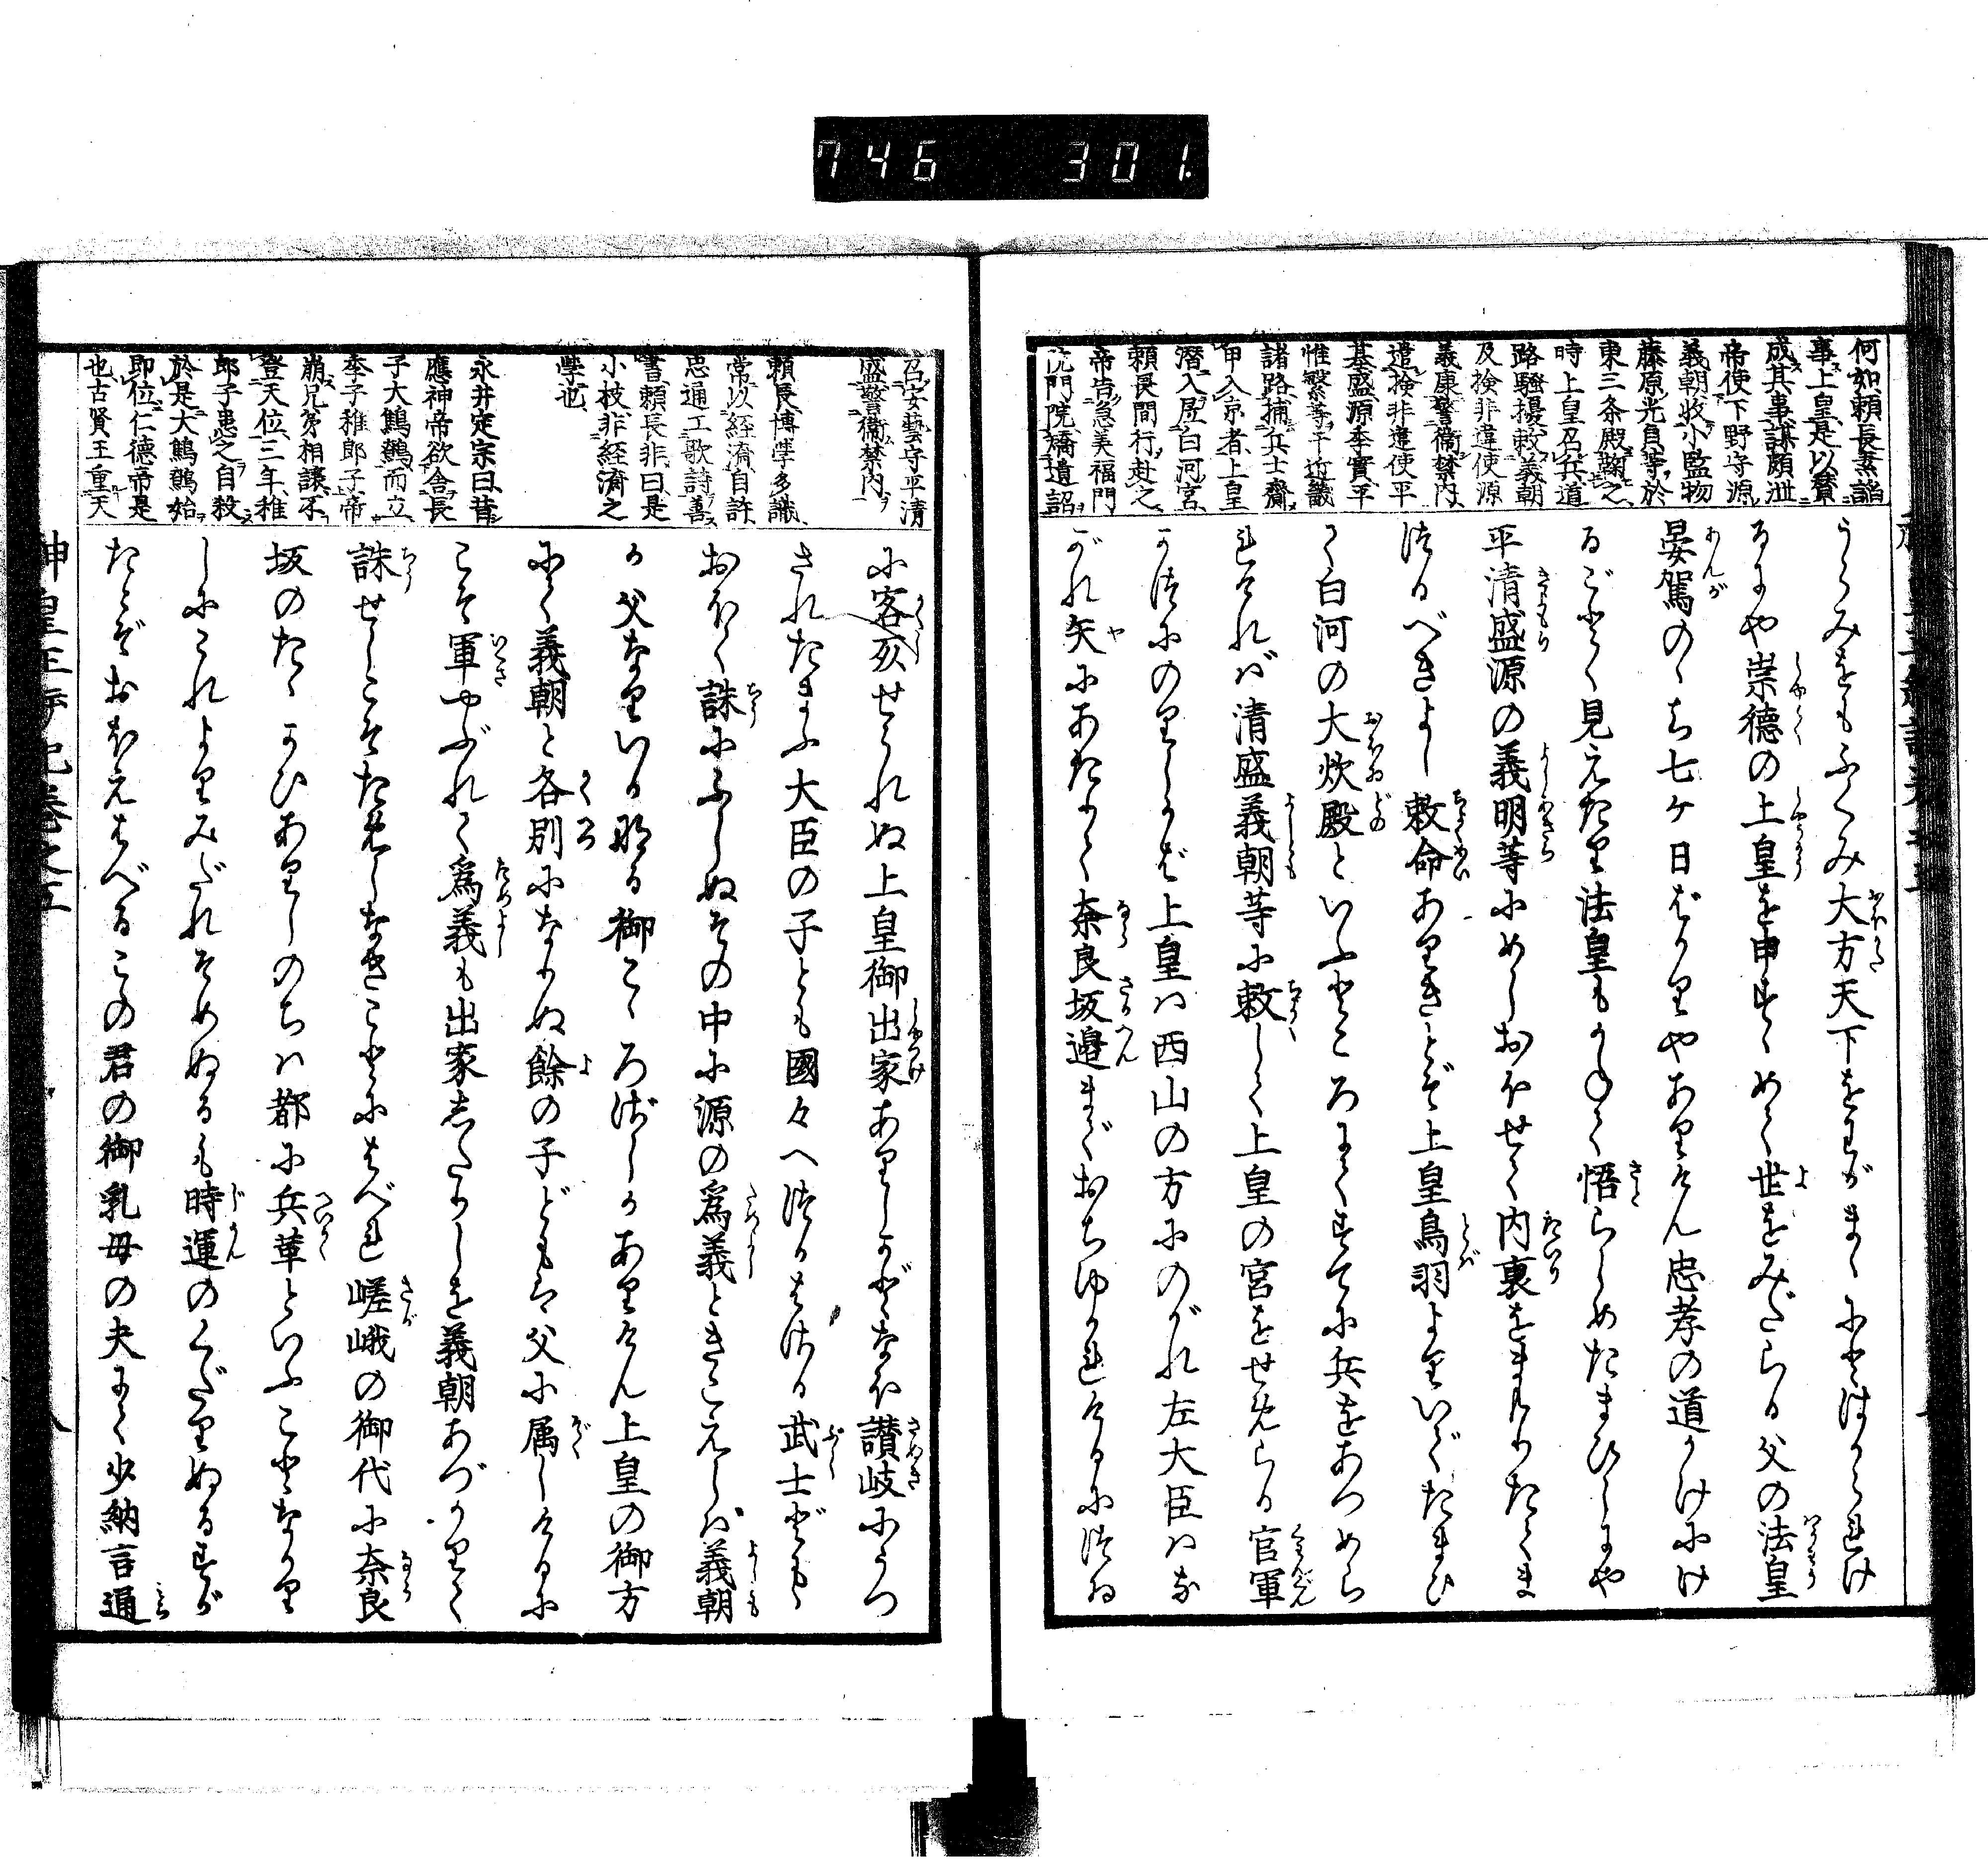 746 301.
何如賴長素諂
事上皇是以贊
成其事謀頗泄
帝使下野守源
義朝收小監物
藤原光貞等於
東三条殿鞫之
時上皇召兵道
路騷擾敕義朝
及検非違使源
義康警衞禁内
遣検非違使平
基盛源季實平
惟繁等于近畿
諸路捕兵士齎
甲入京者上皇
潜入居白河宮
賴長間行赴之
帝告急美福門
院門院矯遺詔
うらみをもふくみ大方天下をわがまゝにとはからはれけ
るにや崇徳の上皇を申すゝめて世をみだらる父の法皇
晏駕のゝち七ケ日ばかりやありけん忠孝の道かけにけ
るごとく見えたり法皇もかねて悟らしめたまひしにや
平清盛源の義明等にめしおほせて内裏をまもりたてま
つるべきよし敕命ありきとぞ上皇鳥羽よりいでたまひ
て白河の大炊殿といふところにてすでに兵をあつめら
れければ清盛義朝等に敕して上皇の宮をせめらる官軍
かつにのりしかば上皇ハ西山の方にのがれ左大臣ハな
がれ矢にあたりて奈良坂邉までおちゆかれけるにつひ
召安藝守平清
盛警衞禁内
賴長博學多識
常以経濟自許
忠通工歌詩善
書賴長非曰是
小技非経濟之
學也
永井定宗曰昔
應神帝欲舎長
子大鷦鷯而立
季子稚郎子帝
崩兄弟相譲不
登天位三年稚
郎子患之自殺
於是大鷦鷯始
即位仁德帝是
也古賢王重天
に客死せられぬ上皇御出家ありしかどなほ讃岐にうつ
されたまふ大臣の子とも國々へつかはさる武士どもゝ
おほく誅にふしぬその中に源の爲義ときこえしハ義朝
が父なりいかなる御こゝろざしかありけん上皇の御方
にて義朝と各別になりぬ餘の子どもは父に属しけるに
こそ軍やぶれて爲義も出家したりしを義朝あづかりて
誅せしこそためしなきことにはべれ嵯峨の御代に奈良
坂のたゝかひありしのちハ都に兵革といふことなかり
しにこれよりみだれそめぬるも時運のくだりぬるすが
たとぞおぼえはべるこの君の御乳母の夫にて少納言通
神皇正統記巻之五